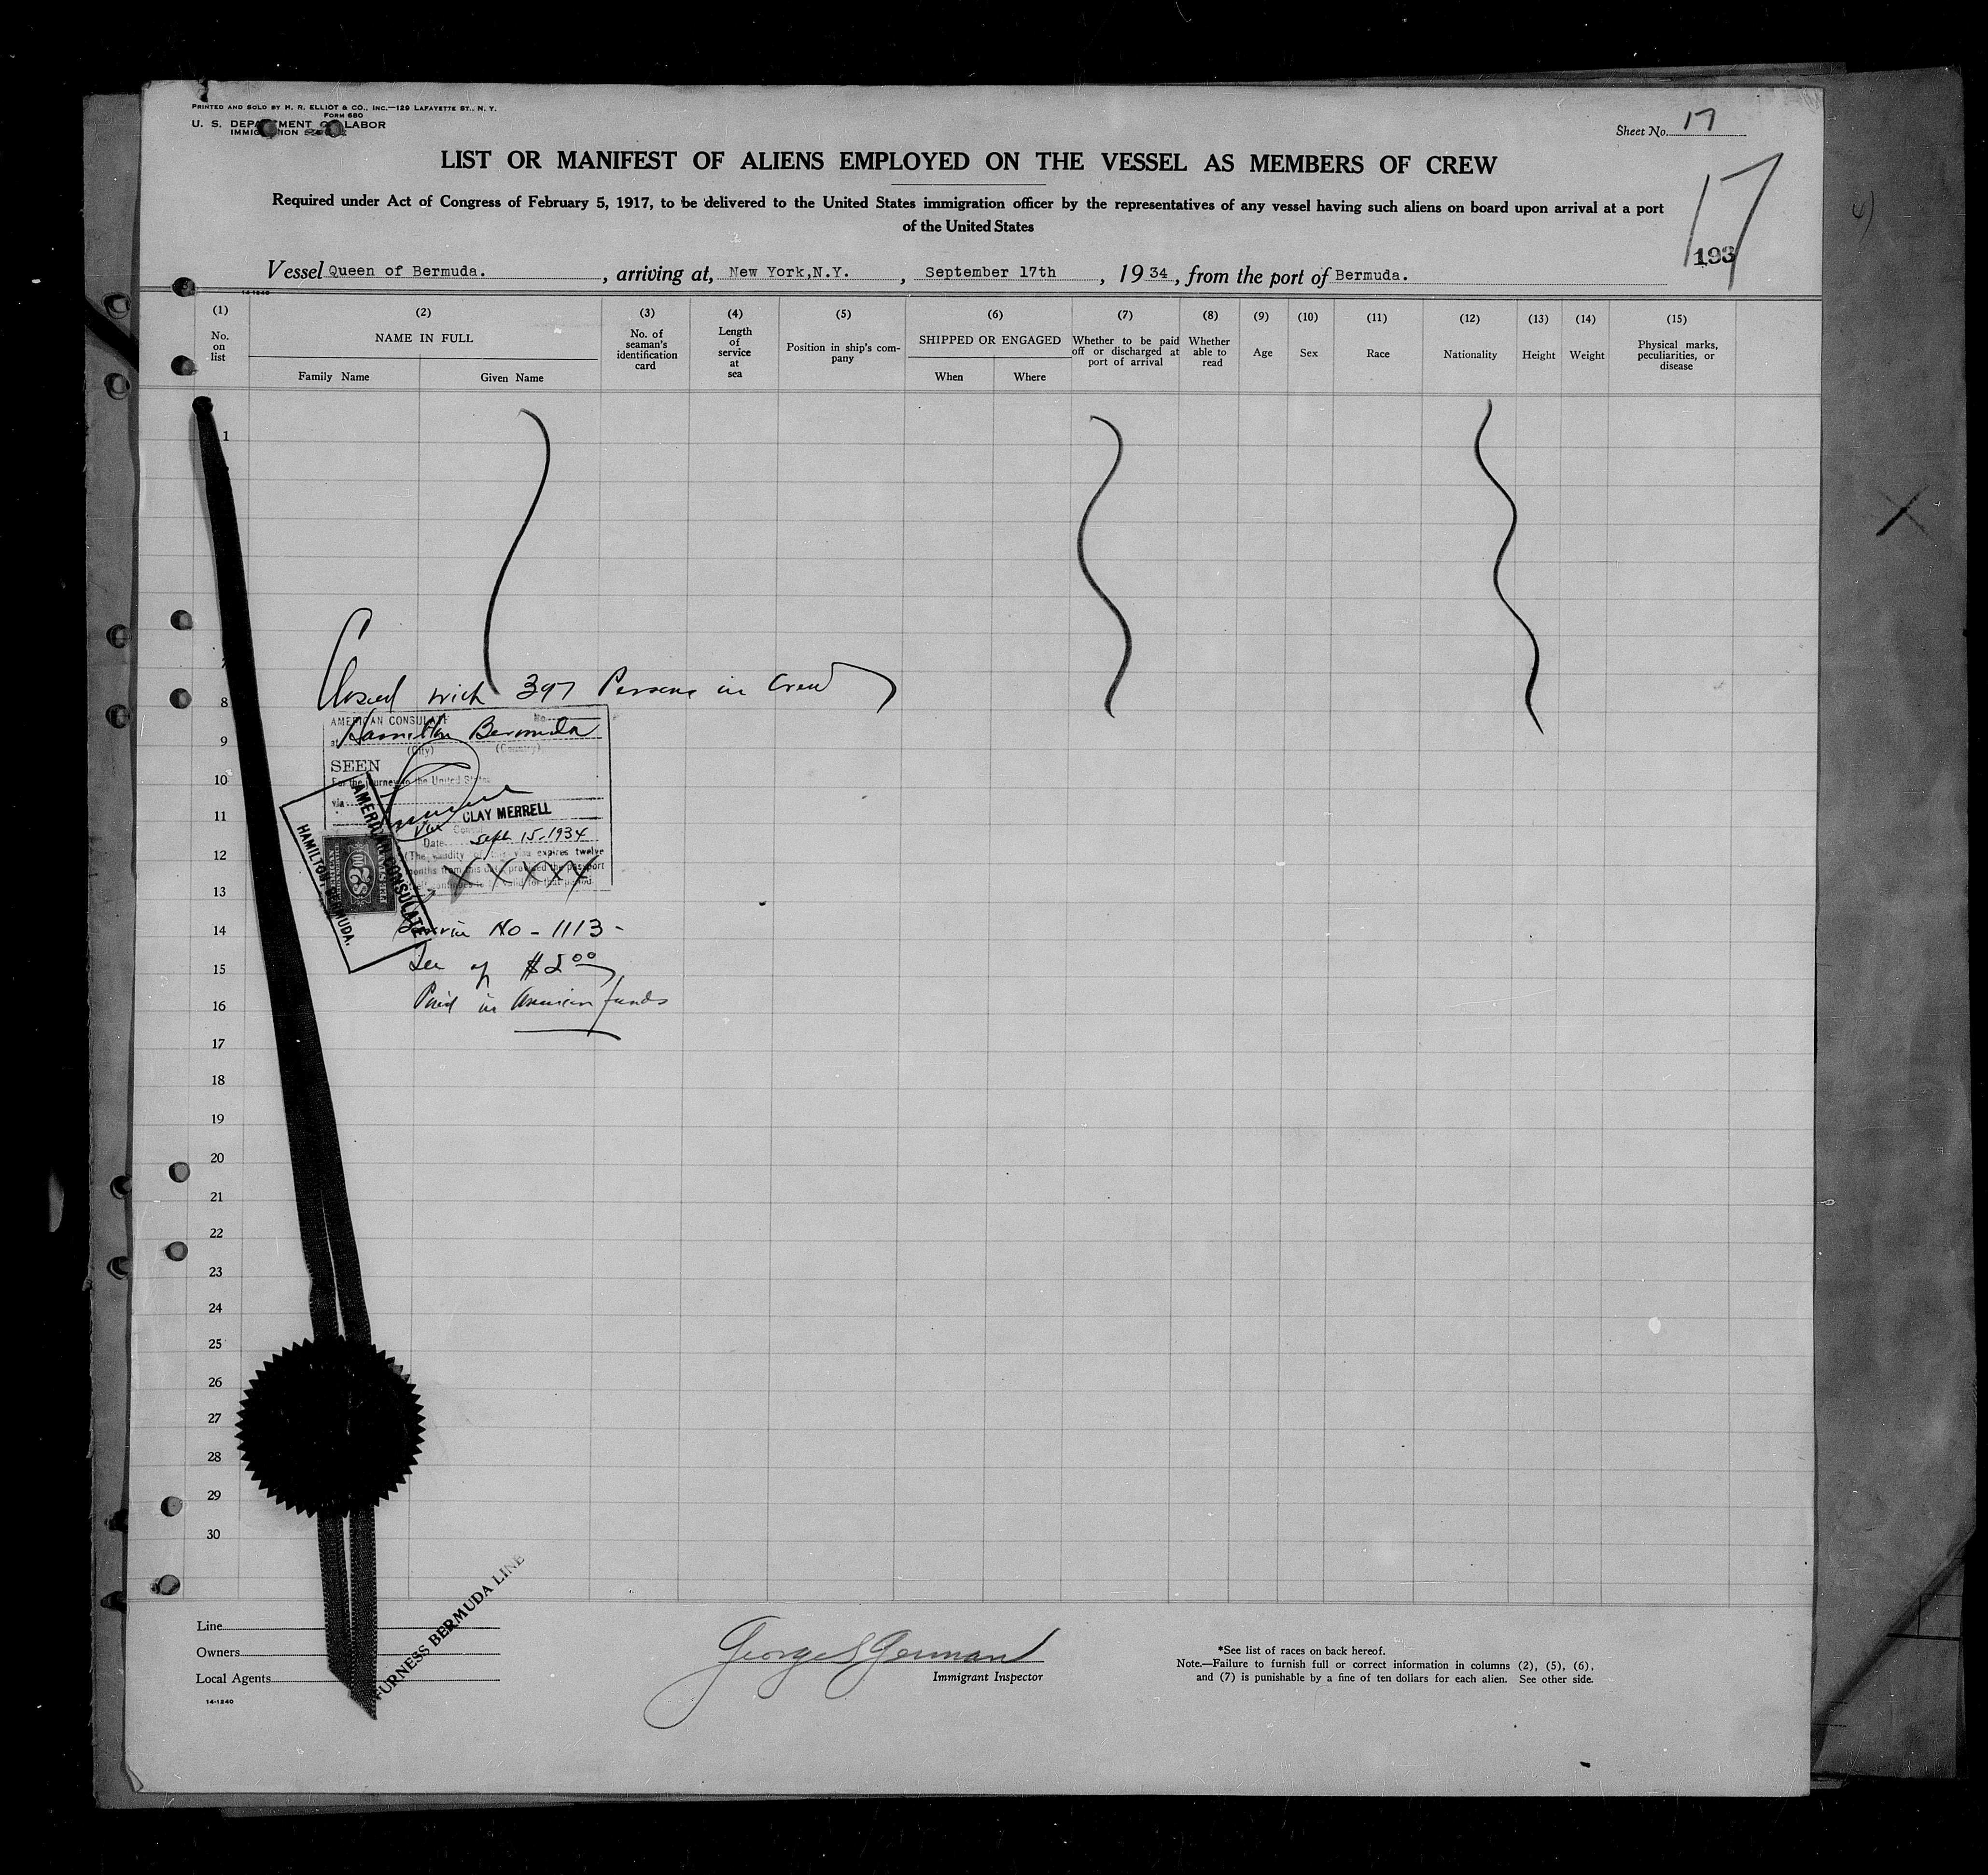 PRINTED AND SOLD BY H. R. ELLIOT & CO., INC.—129 LAFAYETTE ST., N. Y.
FORM 680
U. S. DEPARTMENT OF LABOR
Sheet No. 17
LIST OR MANIFEST OF ALIENS EMPLOYED ON THE VESSEL AS MEMBERS OF CREW
Required under Act of Congress of February 5, 1917, to be delivered to the United States immigration officer by the representatives of any vessel having such aliens on board upon arrival at a port
of the United States
17
193
Vessel Queen of Bermuda. , arriving at, New York,N.Y. , September 17th , 19 34 , from the port of Bermuda.
14-1240
(1) (2) (3) (4) (5) (6) (7) (8) (9) (10) (11) (12) (13) (14) (15)
No. on list
NAME IN FULL
Family Name
Given Name
No. of seaman's identification card
Length of service at sea
Position in ship's com-
pany
SHIPPED OR ENGAGED
When
Where
Whether to be paid off or discharged at port of arrival
Whether able to read
Age
Sex
Race
Nationality
Height
Weight
Physical marks, peculiarities, or disease
1
7
Closed with 397 Persons in Crew
8
AMERICAN CONSULATE No.
at Hamilton Bermuda
(City) (Country)
9
SEEN
10
For the journey to the United States
via
11
CLAY MERRELL
Vice Consul
Date Sept 15-1934
12
(The validity of this visa expires twelve
months from this date provided the passport
continues to be valid for that period
XXXXX
13
AMERICAN CONSULATE
HAMILTON, BERMUDA.
AMERICAN
$2.00
FEE STAMP
14
Service No - 1113 -
15
Fee of $2.00
16
Paid in American funds
17
18
19
20
21
22
23
24
25
26
27
28
29
30
Line
Owners
Local Agents
FURNESS BERMUDA LINE
14-1240
George S German
Immigrant Inspector
*See list of races on back hereof.
Note.—Failure to furnish full or correct information in columns (2), (5), (6),
and (7) is punishable by a fine of ten dollars for each alien. See other side.